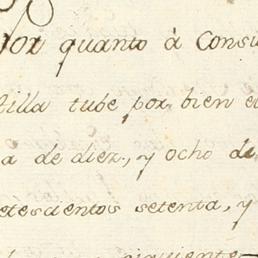 Por quanto à Consu
tilla tube por bien e
a de diez, y ocho de
etescientos setenta, y
siguiente